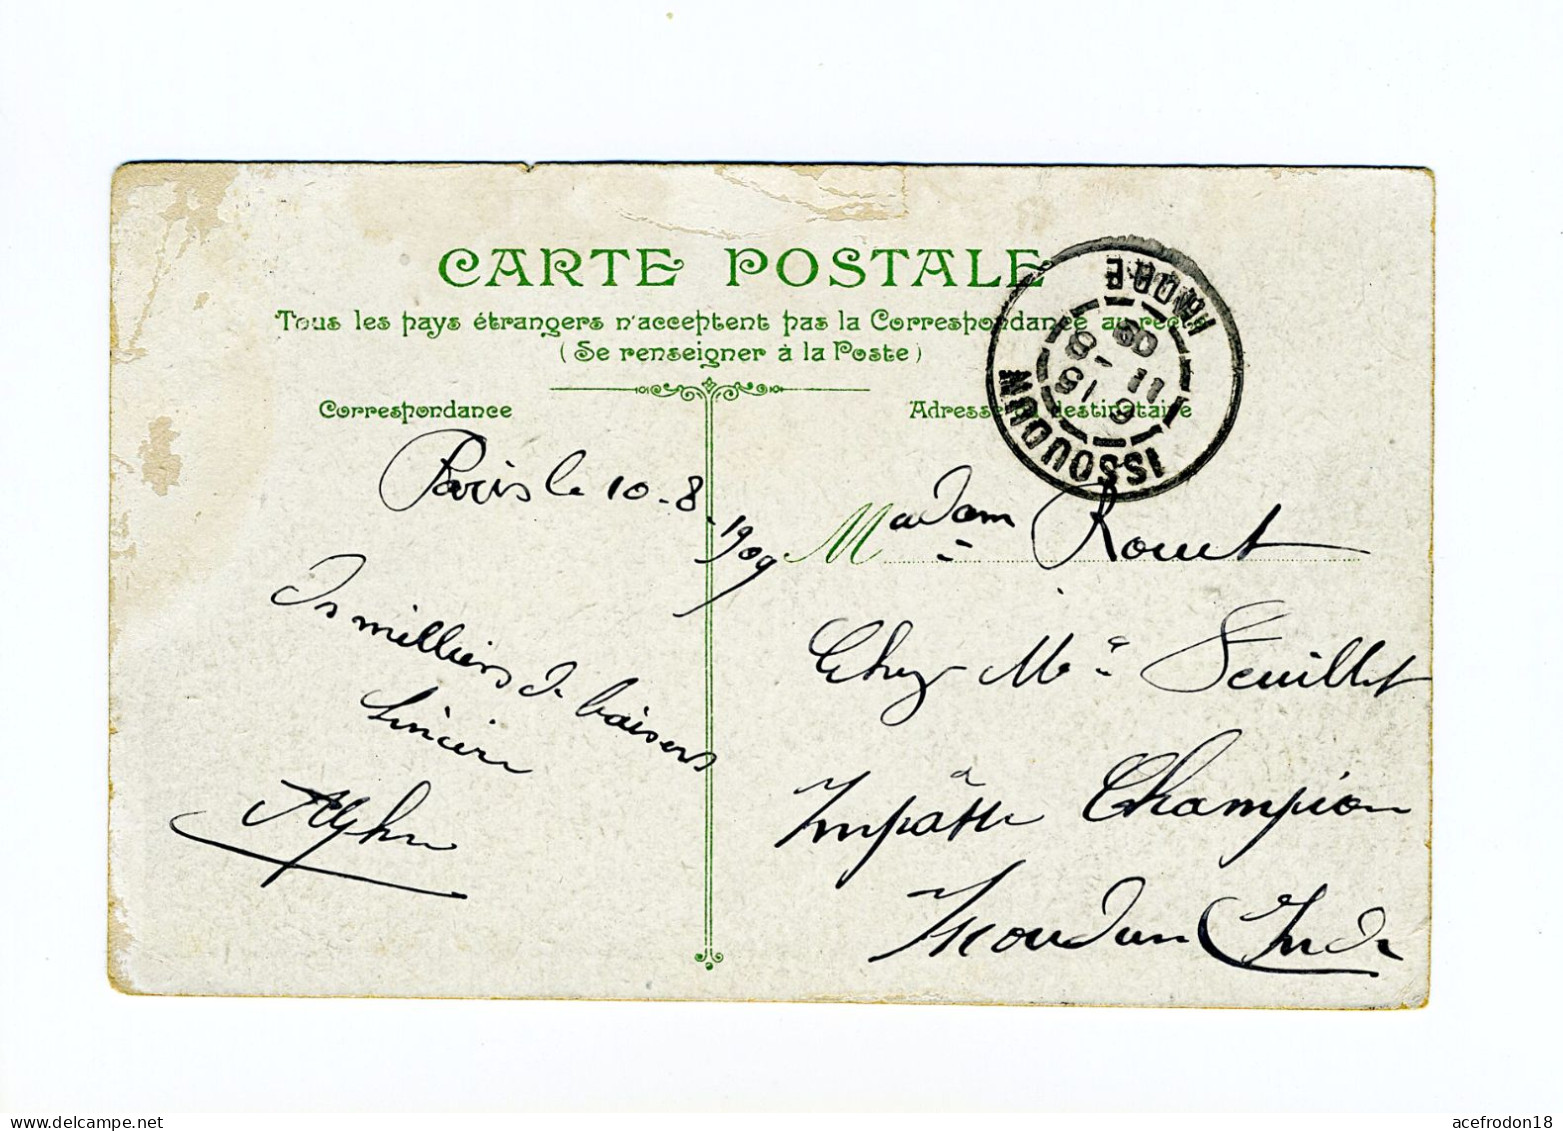 CARTE POSTALE
Tous les pays étrangers n'acceptent pas la Correspondance au recto
(Se renseigner à la Poste)
Correspondance
Adresse du destinataire
ISSOUDUN
INDRE
6 15
11 -8
09
Paris le 10-8-1909
Ds milliers de baisers
Sincère
Madame Rouet
Chez Me Feuillet
Impâsse Champion
Issoudun Indre
acefrodon18